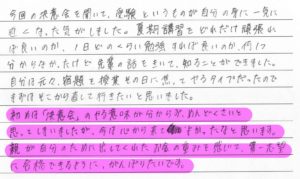 今回の決意会を聞いて、受験というものが自分の身に一気に
近くなった気がしました。夏期講習をどれだけ頑張れ
ば良いのか、1日どのくらい勉強すれば良いのか、何に
分からなかったけど先輩の話をきいて、知ることができました。
自分は元々、宿題を授業その日に焦ってやるタイプだったので
まずはそこから直して行きたいと思いました。
初めは「決意会」のやる意味が分からず、めんどくさいと
思ってしまいましたが、今は心から来て良かったなと思います。
親が自分のために出してくれたお金の重みを感じて、第一志望
に合格できるように、がんばりたいです。